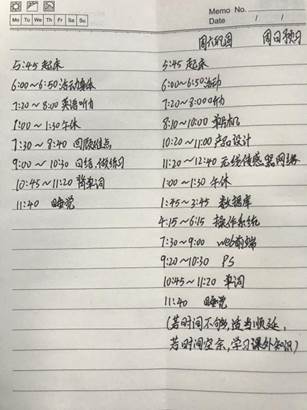 Memo No.
Mo Tu We Th Fr Sa Su
Date / /
周六巩固 周日预习
5:45 起床
6:00~6:50 活动身体
7:20~8:00 英语听力
1:00~1:30 午休
7:30~8:40 回顾难点
9:00~10:30 总结,做练习
10:45~11:20 背单词
11:40 睡觉
5:45 起床
6:00~6:50 活动
7:20~8:00 听力
8:10~10:00 单片机
10:20~11:00 产品设计
11:20~12:40 无线传感器网络
1:00~1:30 午休
1:45~3:45 数据库
4:15~6:15 操作系统
7:30~9:00 web前端
9:20~10:30 PS
10:45~11:20 单词
11:40 睡觉
(若时间不够,适当顺延,
若时间空余,学习课外知识)